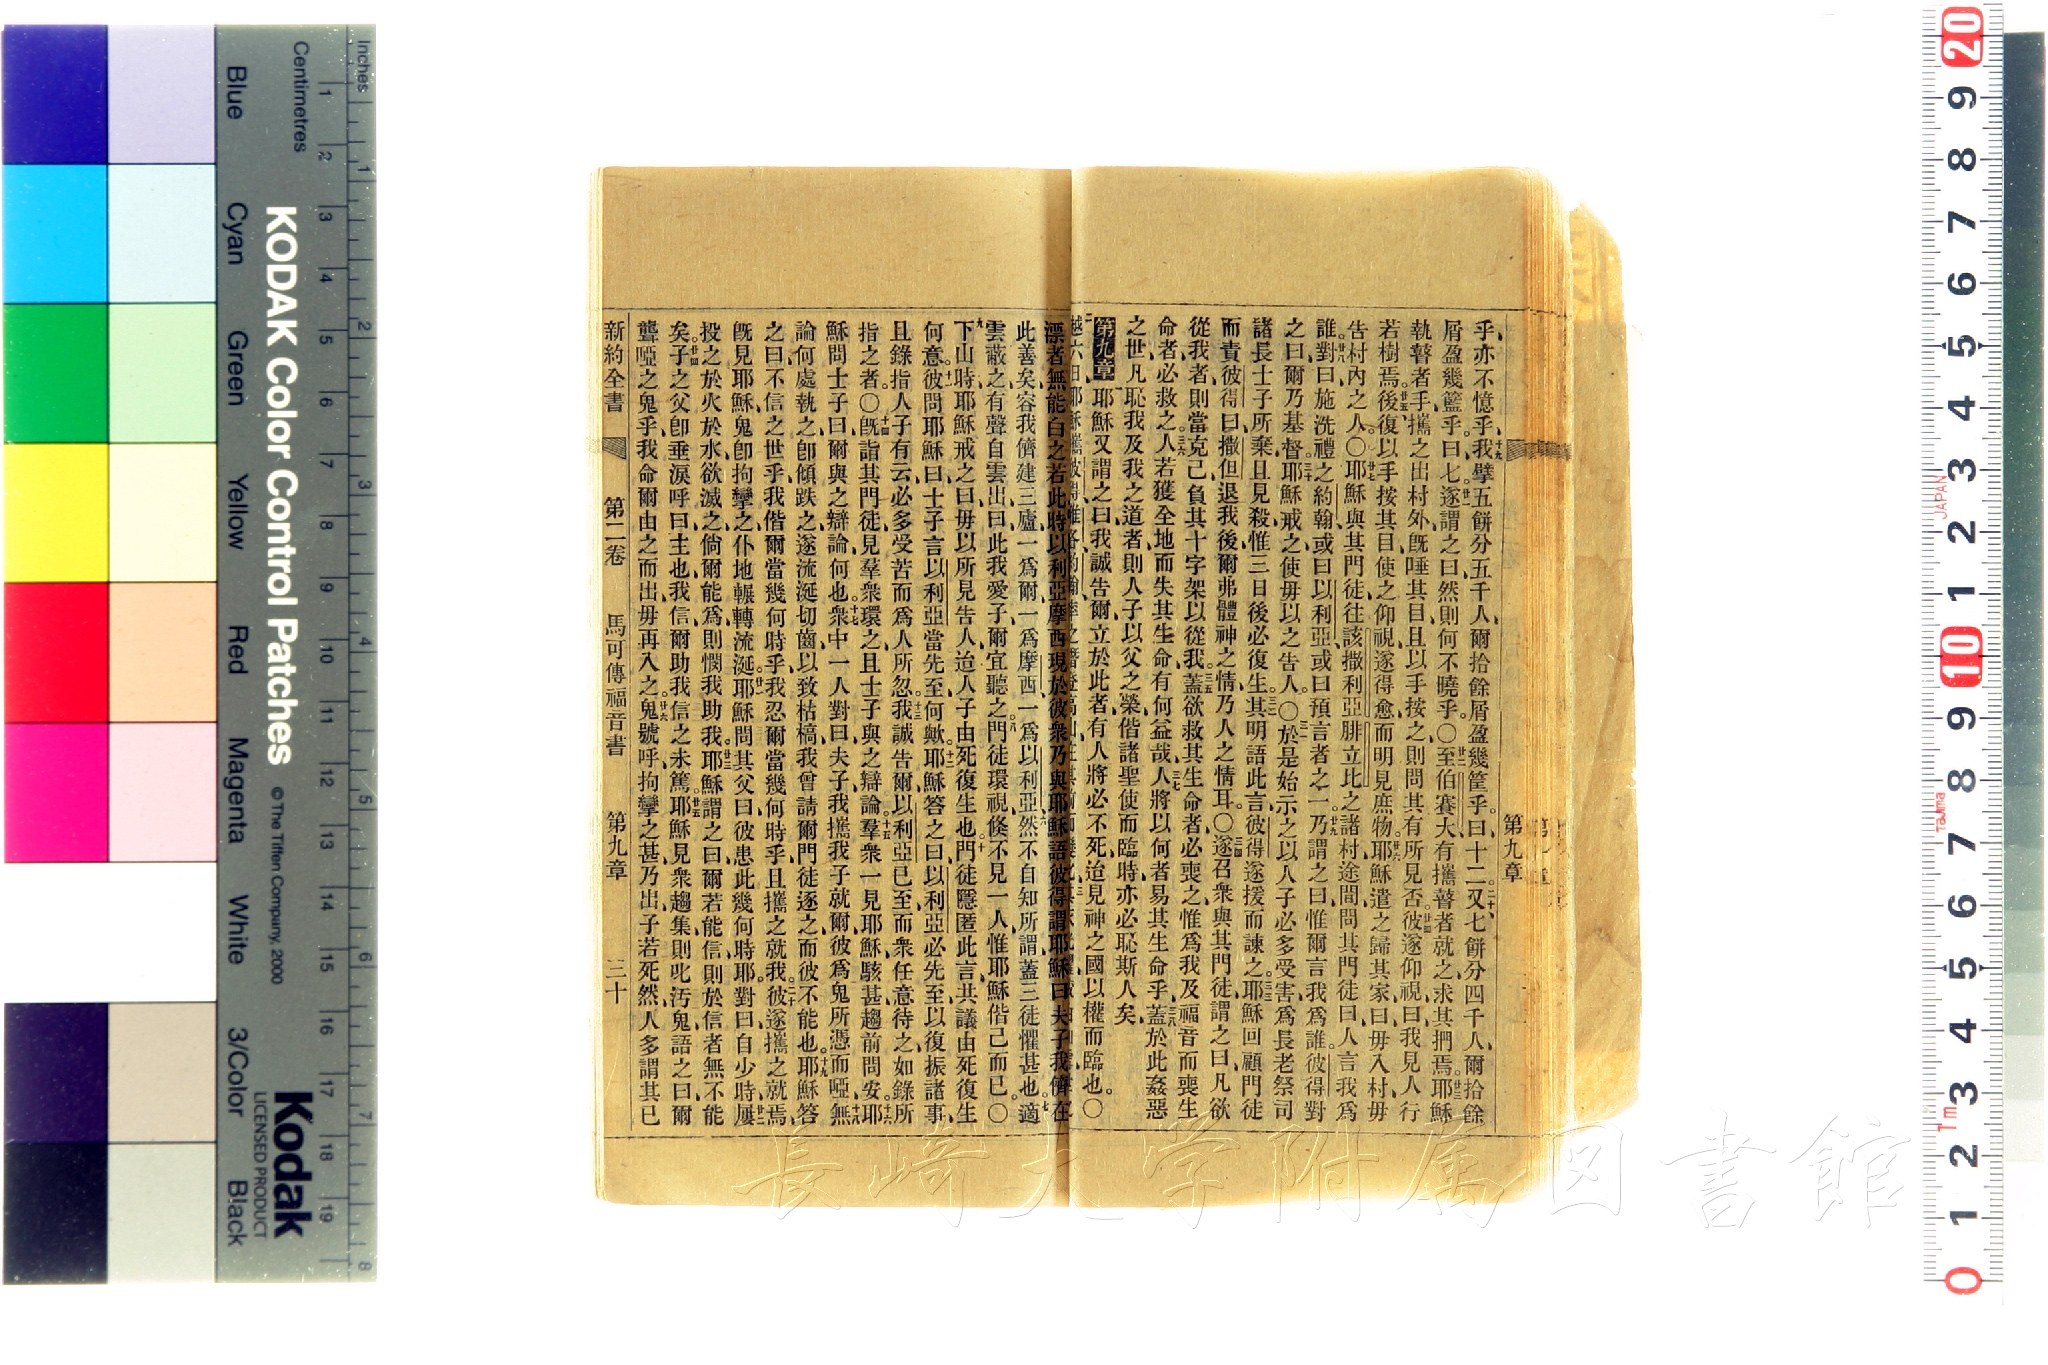 乎亦不憶乎我擘五餅分五千人爾拾餘屑盈幾筐乎曰十二又七餅分四千人爾拾餘
屑盈幾籃乎曰七遂謂之曰然則何不曉乎〇至伯賽大有攜瞽者就之求其捫焉耶穌
執瞽者手攜之出村外旣唾其目且以手按之則問其有所見否彼遂仰視曰我見人行
若樹焉後復以手按其目使之仰視遂得愈而明見庶物耶穌遣之歸其家曰毋入村毋
告村內之人〇耶穌與其門徒往該撒利亞腓立比之諸村途間問其門徒曰人言我爲
誰對曰施洗禮之約翰或曰以利亞或曰預言者之一乃謂之曰惟爾言我爲誰彼得對
之曰爾乃基督耶穌戒之使毋以之告人〇於是始示之以人子必多受害爲長老祭司
諸長士子所棄且見殺惟三日後必復生其明語此言彼得遂援而諫之耶穌回顧門徒
而責彼得曰撒但退我後爾弗體神之情乃人之情耳〇遂召衆與其門徒謂之曰凡欲
從我者則當克己負其十字架以從我蓋欲救其生命者必喪之惟爲我及福音而喪生
命者必救之人若獲全地而失其生命有何益哉人將以何者易其生命乎蓋於此姦惡
之世凡恥我及我之道者則人子以父之榮偕諸聖使而臨時亦必恥斯人矣
第九章 耶穌又謂之曰我誠告爾立於此者有人將必不死迨見神之國以權而臨也〇
第九章
漂者無能白之若此時以利亞摩西現於彼衆乃與耶穌語彼得謂耶穌曰夫子我儕在
此善矣容我儕建三廬一爲爾一爲摩西一爲以利亞然不自知所謂蓋三徒懼甚也適
雲蔽之有聲自雲出曰此我愛子爾宜聽之門徒環視倏不見一人惟耶穌偕己而已〇
下山時耶穌戒之曰毋以所見告人迨人子由死復生也門徒隱匿此言共議由死復生
何意彼問耶穌曰士子言以利亞當先至何歟耶穌答之曰以利亞必先至以復振諸事
且錄指人子有云必多受苦而爲人所忽我誠告爾以利亞已至而衆任意待之如錄所
指之者〇旣詣其門徒見羣衆環之且士子與之辯論羣衆一見耶穌駭甚趨前問安耶
穌問士子曰爾與之辯論何也衆中一人對曰夫子我攜我子就爾彼爲鬼所憑而啞無
論何處執之卽傾跌之遂流涎切齒以致枯槁我曾請爾門徒逐之而彼不能也耶穌答
之曰不信之世乎我偕爾當幾何時乎我忍爾當幾何時乎且攜之就我彼遂攜之就焉
旣見耶穌鬼卽拘攣之仆地輾轉流涎耶穌問其父曰彼患此幾何時耶對曰自少時屢
投之於火於水欲滅之倘爾能爲則憫我助我耶穌謂之曰爾若能信則於信者無不能
矣子之父卽垂淚呼曰主也我信爾助我信之未篤耶穌見衆趨集則叱汚鬼語之曰爾
聾啞之鬼乎我命爾由之而出毋再入之鬼號呼拘攣之甚乃出子若死然人多謂其已
新約全書 第二卷 馬可傳福音書 第九章 三十
長崎大学附属図書館
Inches
Centimetres
KODAK Color Control Patches
© The Tiffen Company, 2000
Kodak
LICENSED PRODUCT
Blue
Cyan
Green
Yellow
Red
Magenta
White
3/Color
Black
JAPAN
Tajima
Tm